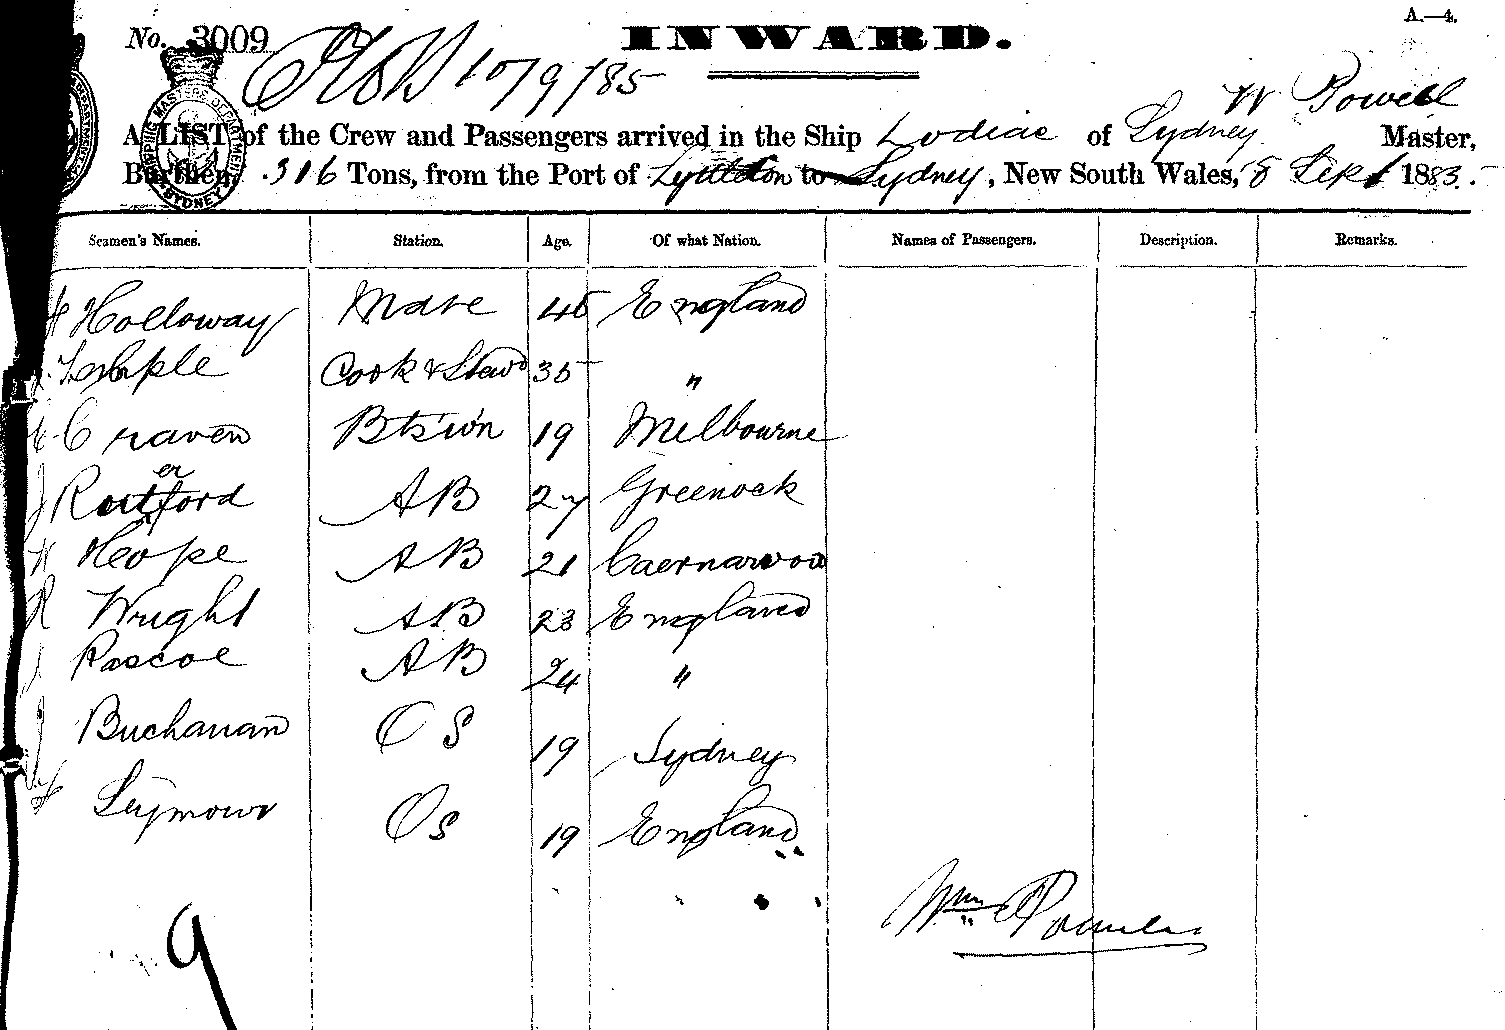 A.—4.
No. 3009 INWARD.
10/9/85
W Powell
A LIST of the Crew and Passengers arrived in the Ship Zodiac of Sydney Master,
Burthen, 316 Tons, from the Port of Lyttelton to Sydney, New South Wales, 8 Sept 1883.
Seamen's Names. Station. Age. Of what Nation. Names of Passengers. Description. Remarks.
H Holloway Mate 45 England
Cook & Stewd 35 "
C Craven Btswn 19 Melbourne
J AB 27 Greenock
W Hope AB 21 Caernarvon
R Wright AB 23 England
J Rascoe AB 24 "
J Buchanan OS 19 Sydney
Seymour OS 19 England
Wm Powell
9